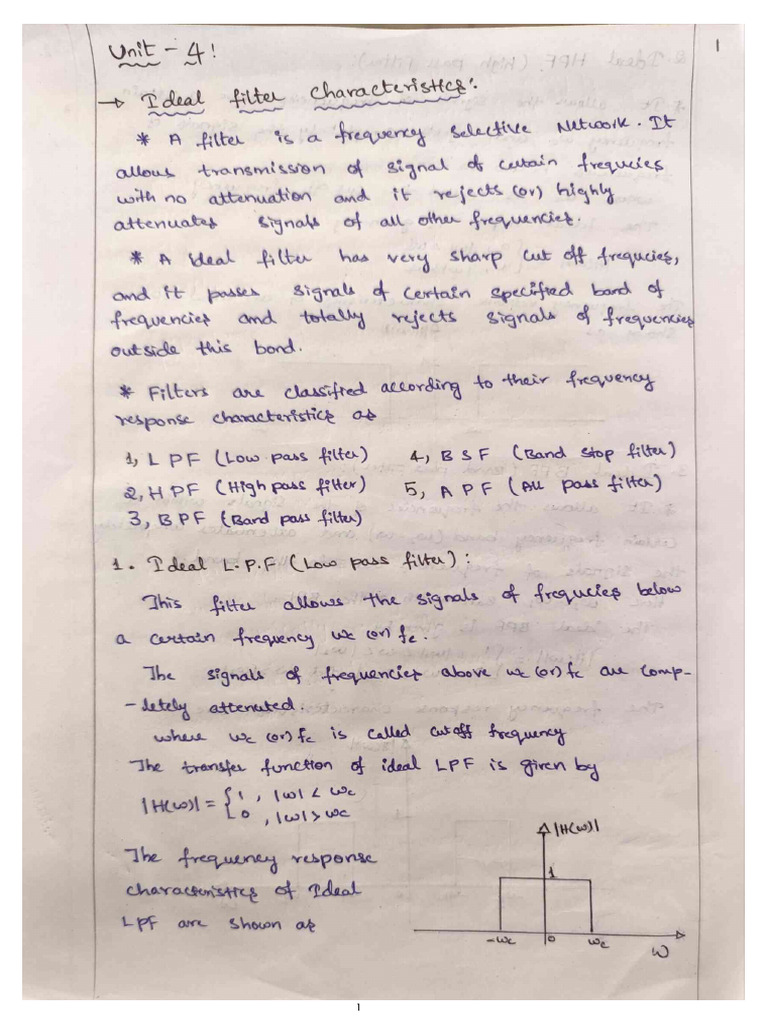 1
Unit - 4!
→ Ideal filter characteristics:
* A filter is a frequency selective Network. It
allows transmission of signal of certain frequcies
with no attenuation and it rejects (or) highly
attenuates signals of all other frequencies.
* A Ideal filter has very sharp cut off frequcies,
and it passes signals of certain specified band of
frequencies and totally rejects signals of frequencies
outside this bond.
* Filters are classified according to their frequency
response characteristics as
1, LPF (Low pass filter) 4, BSF (Band stop filter)
2, HPF (High pass filter) 5, APF (All pass filter)
3, BPF (Band pass filter)
1. Ideal L.P.F (Low pass filter):
This filter allows the signals of frequcies below
a certain frequency ωc (or) fc.
The signals of frequencies above ωc (or) fc are comp-
-letely attenuated.
where ωc (or) fc is called cutoff frequency
The transfer function of ideal LPF is given by
|H(ω)| = { 1 , |ω| < ωc
0 , |ω| > ωc
The frequency response
characteristics of Ideal
LPF are shown as
|H(ω)|
1
-ωc 0 ωc
ω
1